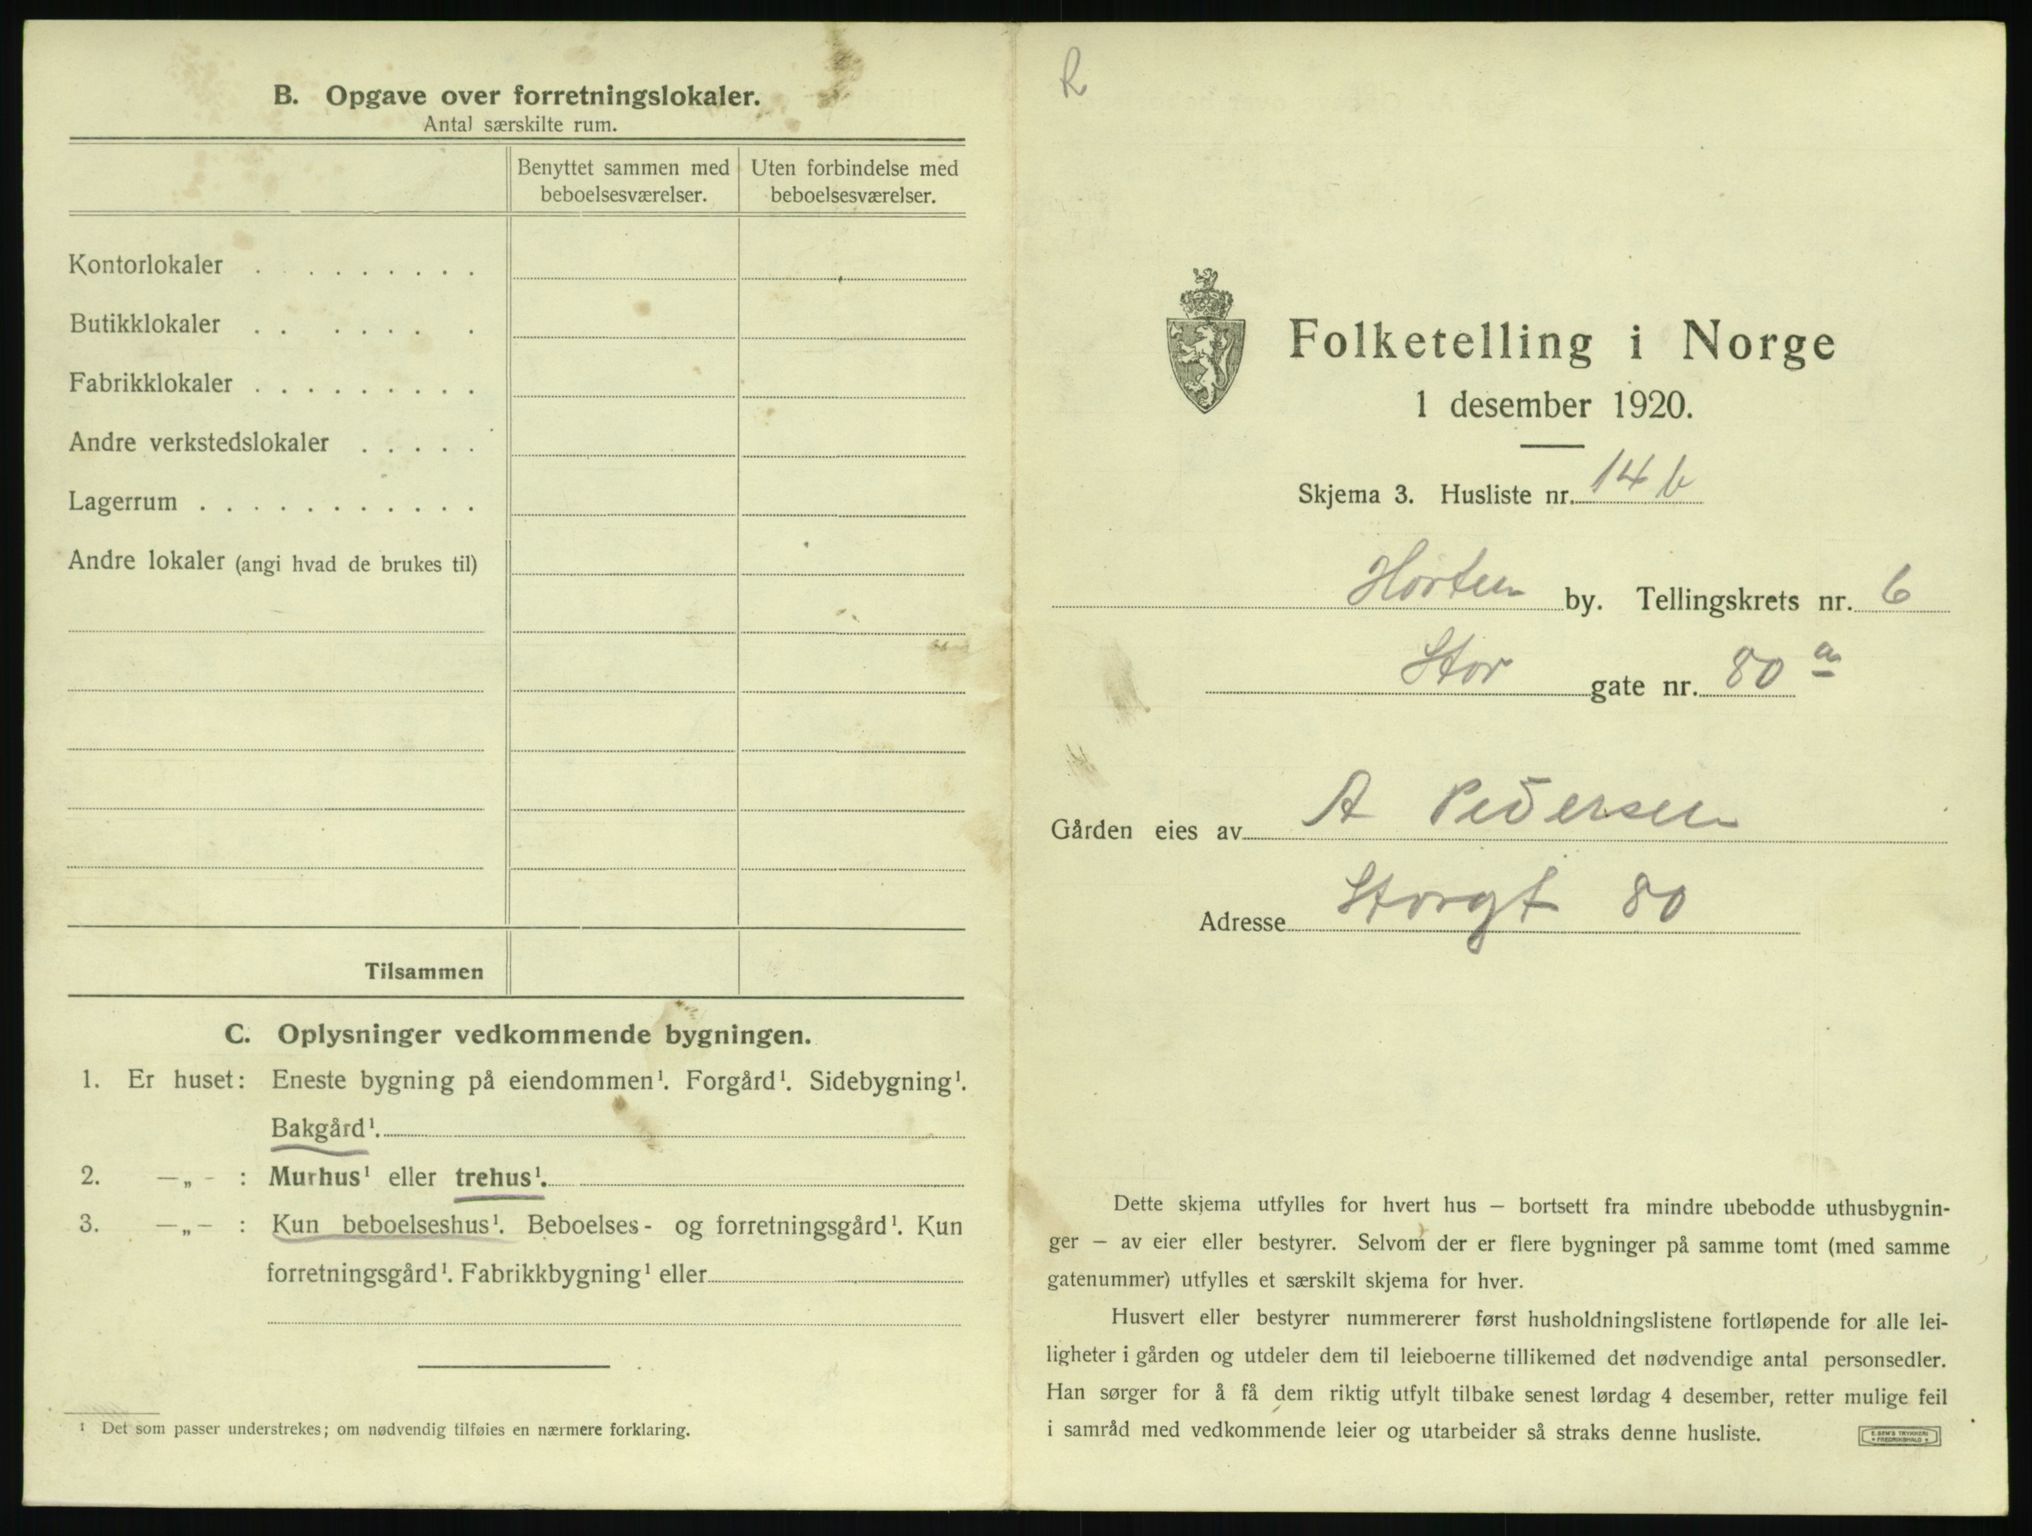 B. Opgave over forretningslokaler.
Antal særskilte rum.
Benyttet sammen med beboelsesværelser.
Uten forbindelse med beboelsesværelser.
Kontorlokaler . . . . . . . . .
Butikklokaler . . . . . . .
Fabrikklokaler . . . . . . . . .
Andre verkstedslokaler . . . . .
Lagerrum . . . . . . . . . . .
Andre lokaler (angi hvad de brukes til)
Tilsammen
C. Oplysninger vedkommende bygningen.
1. Er huset: Eneste bygning på eiendommen¹. Forgård¹. Sidebygning¹.
Bakgård¹.
2. —„— : Murhus¹ eller trehus¹.
3. —„— : Kun beboelseshus¹. Beboelses- og forretningsgård¹. Kun
forretningsgård¹. Fabrikkbygning¹ eller
¹ Det som passer understrekes; om nødvendig tilføies en nærmere forklaring.
R
Folketelling i Norge
1 desember 1920.
Skjema 3. Husliste nr. 14 b
Horten by. Tellingskrets nr. 6
Stor gate nr. 80 a
Gården eies av A Pedersen
Adresse Storgt 80
Dette skjema utfylles for hvert hus – bortsett fra mindre ubebodde uthusbygnin-
ger – av eier eller bestyrer. Selvom der er flere bygninger på samme tomt (med samme
gatenummer) utfylles et særskilt skjema for hver.
Husvert eller bestyrer nummererer først husholdningslistene fortløpende for alle lei-
ligheter i gården og utdeler dem til leieboerne tillikemed det nødvendige antal personsedler.
Han sørger for å få dem riktig utfylt tilbake senest lørdag 4 desember, retter mulige feil
i samråd med vedkommende leier og utarbeider så straks denne husliste.
E. SEM'S TRYKKERI
FREDRIKSHALD